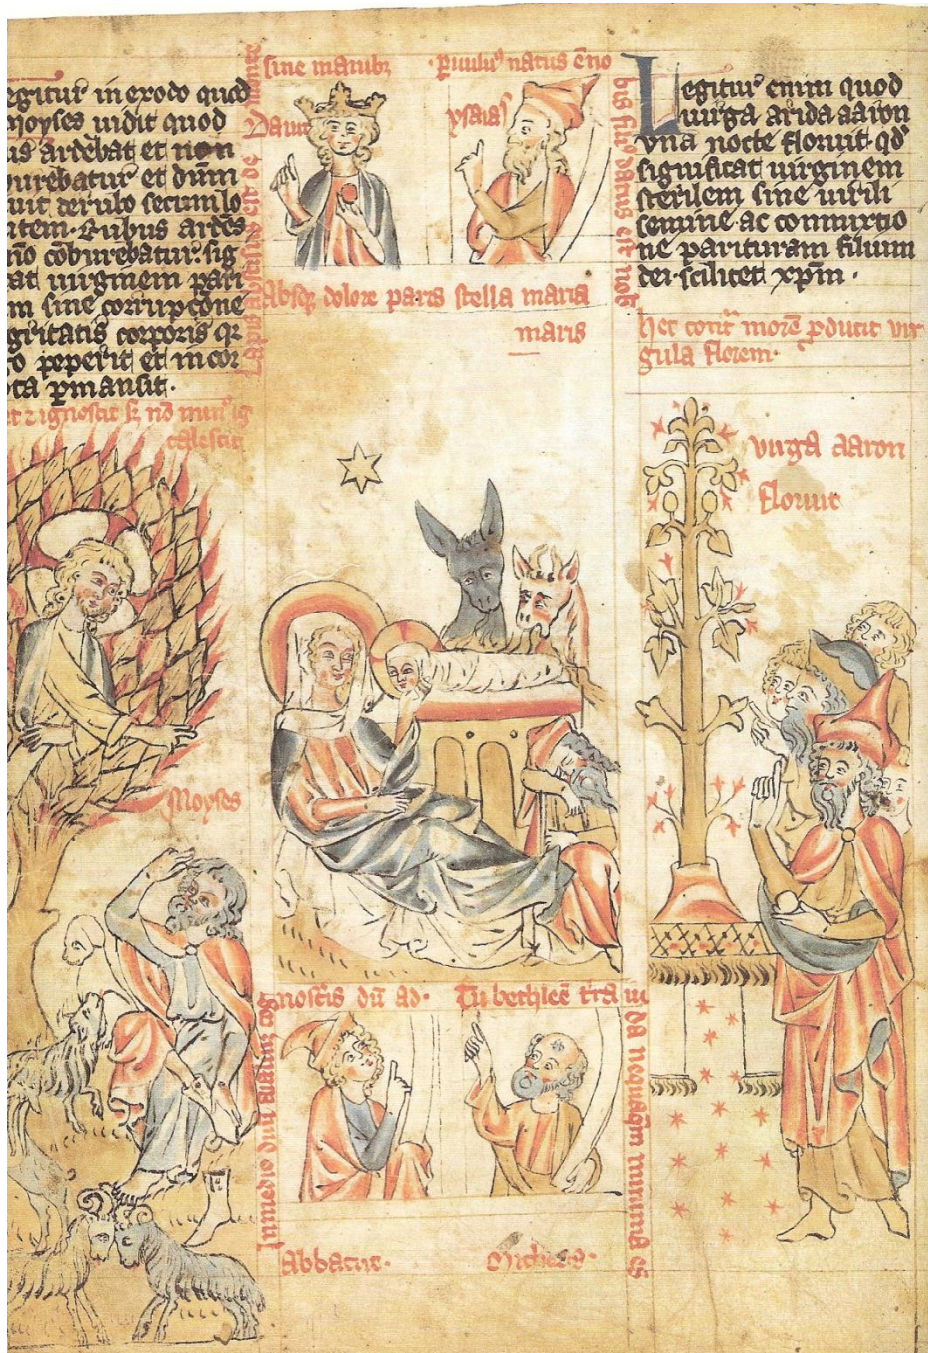 egitur in exodo quod
moyses uidit quod
us ardebat et non
burebatur et dum
uit de rubo secum lo
item. Rubus ardēs
nō cōburebatur. sig
cat uirginem pari
m sine corrupcōne
gritatis corporis qr
o peperit et in cor
ta pmansit.
et ignoscit
calescit
Moyses
Lapis abscisus est de monte
sine manibz
Dauit
puulus natus ē no
bis fili' datus est nob
ysaias
Absqz dolore paris stella maria
maris
Legitur enim quod
uirga arida aaron
vna nocte floruit. qd
significat uirginem
sterilem sine uirili
semine ac commixtio
ne parituram filium
dei. scilicet xpm.
hec contr morē pducit vir
gula florem.
virga aaron
floruit
In medio duū aīaliū cog
nosceris dū ad.
Tu bethleē tra iu
da nequaqm minima es
Abbacuc.
Micheas.